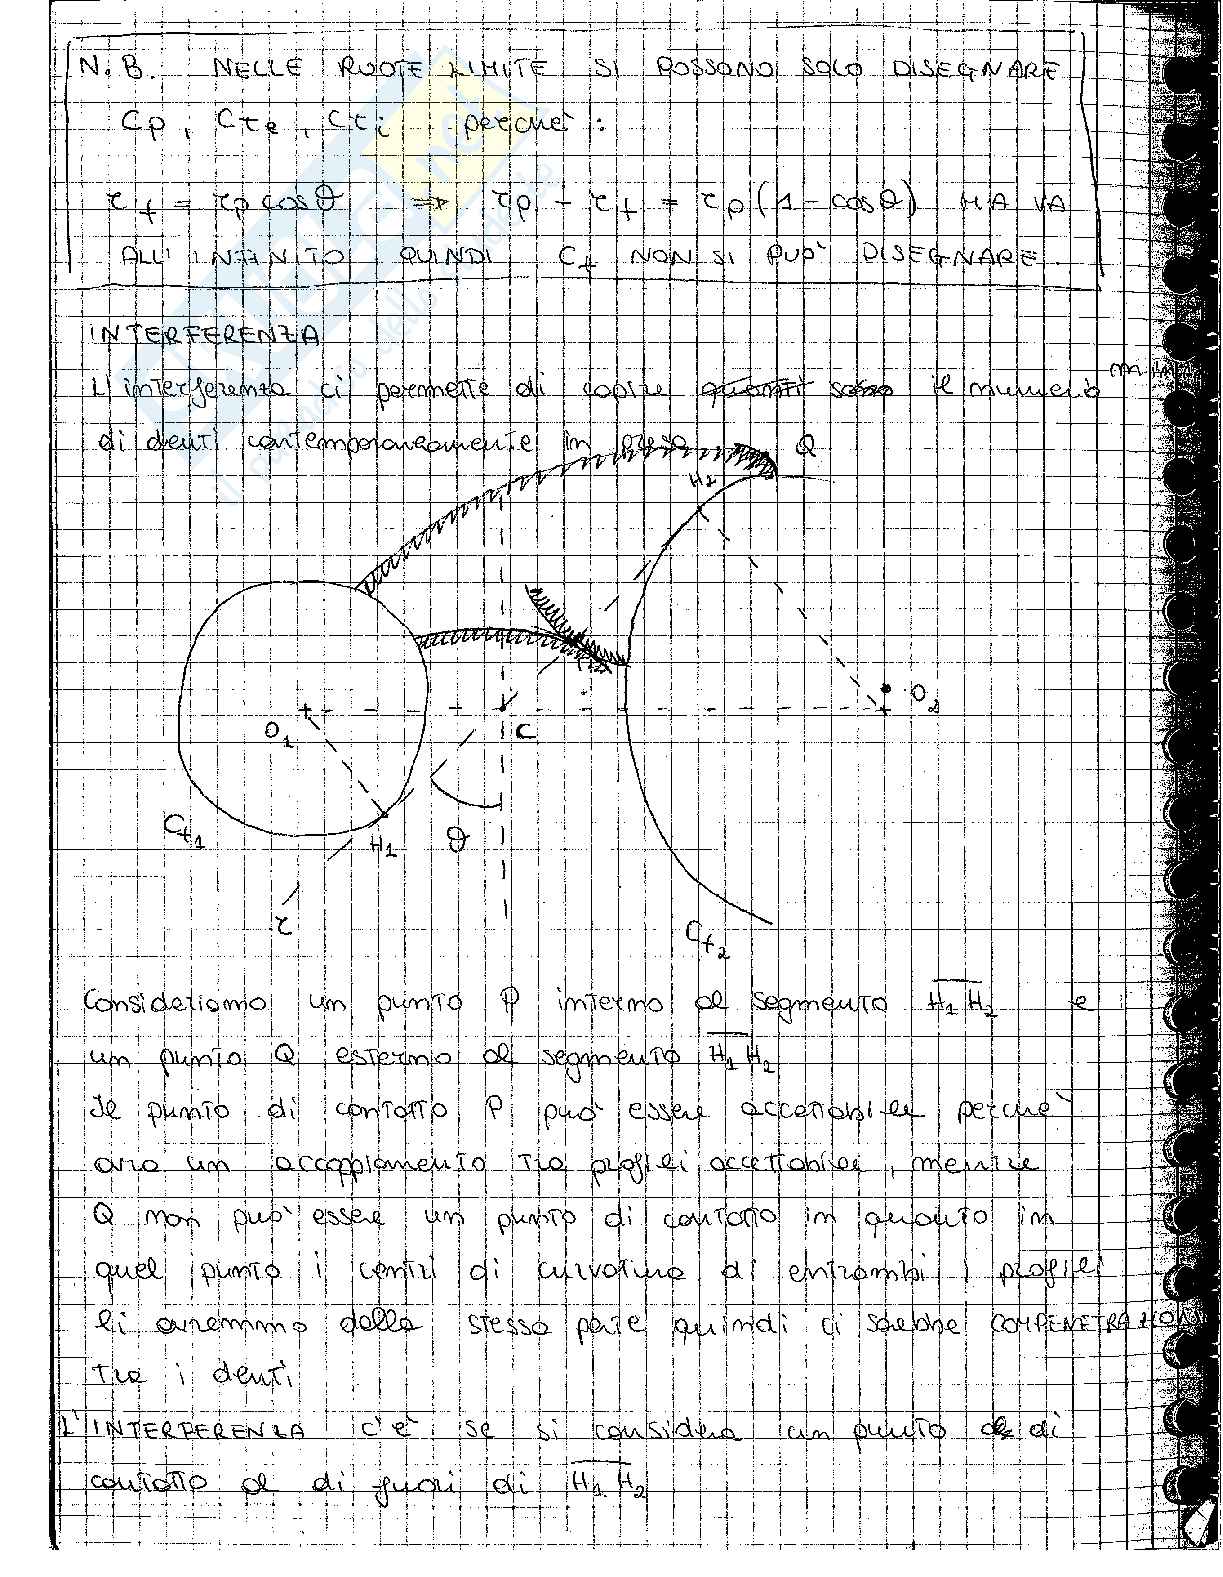 N.B. NELLE RUOTE LIMITE SI POSSONO SOLO DISEGNARE
Cp, Cte, Cti perche':
rf = rp cosθ ⇒ rp - rf = rp(1-cosθ) MA VA
ALL'INFINITO QUINDI Cf NON SI PUO' DISEGNARE
INTERFERENZA
L'interferenza ci permette di capire quanti sono il numero min
di denti contemporaneamente in presa
Q
H2
O1
C
O2
Cf1
H1
θ
r
Cf2
Consideriamo un punto P interno al segmento H1H2 e
un punto Q esterno al segmento H1H2
Il punto di contatto P puo' essere accettabile perche'
avrà un accoppiamento tra profili accettabile, mentre
Q non puo' essere un punto di contatto in quanto in
quel punto i centri di curvatura di entrambi i profili
li avremmo dalla stessa parte quindi ci sarebbe COMPENETRAZIONE
tra i denti
L'INTERFERENZA c'e' se si considera un punto di
contatto al di fuori di H1H2